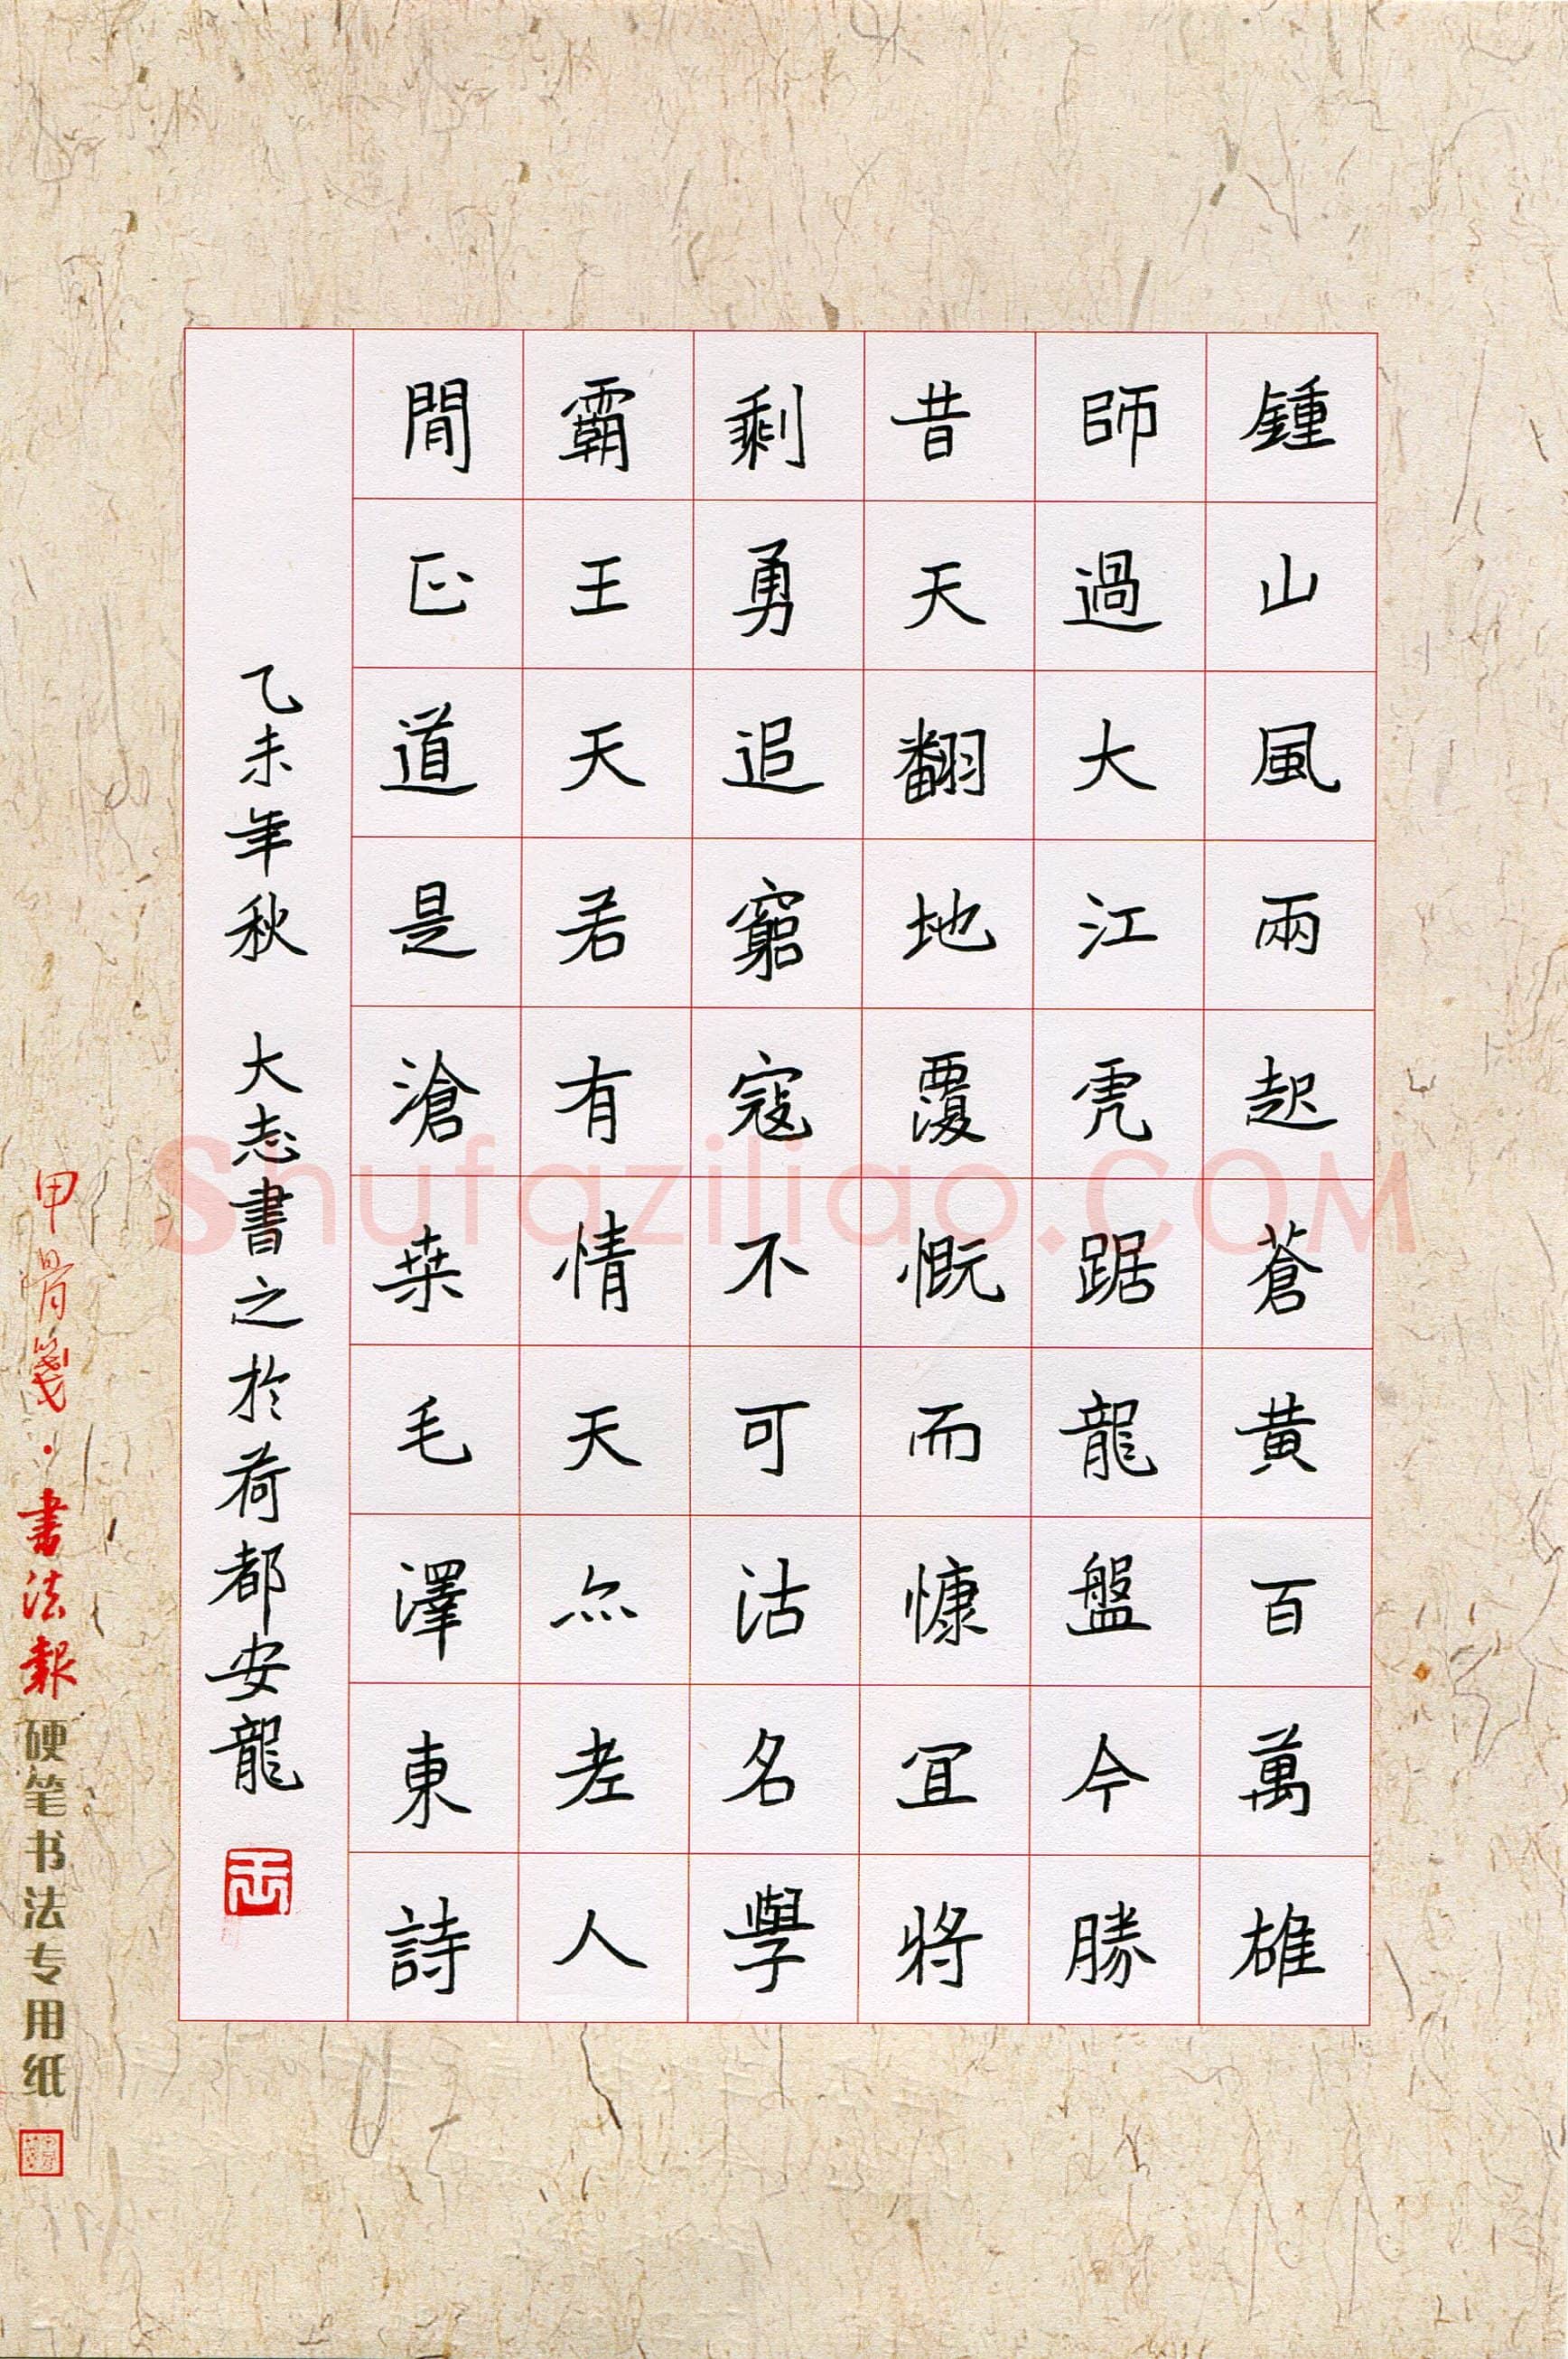 鍾山風雨起蒼黄百萬雄
師過大江虎踞龍盤今勝
昔天翻地覆慨而慷宜將
剩勇追窮寇不可沽名學
霸王天若有情天亦老人
間正道是滄桒毛澤東詩
乙未年秋 大志書之於荷都安龍
甲骨箋·書法報 硬笔书法专用纸
shufaziliao.COM